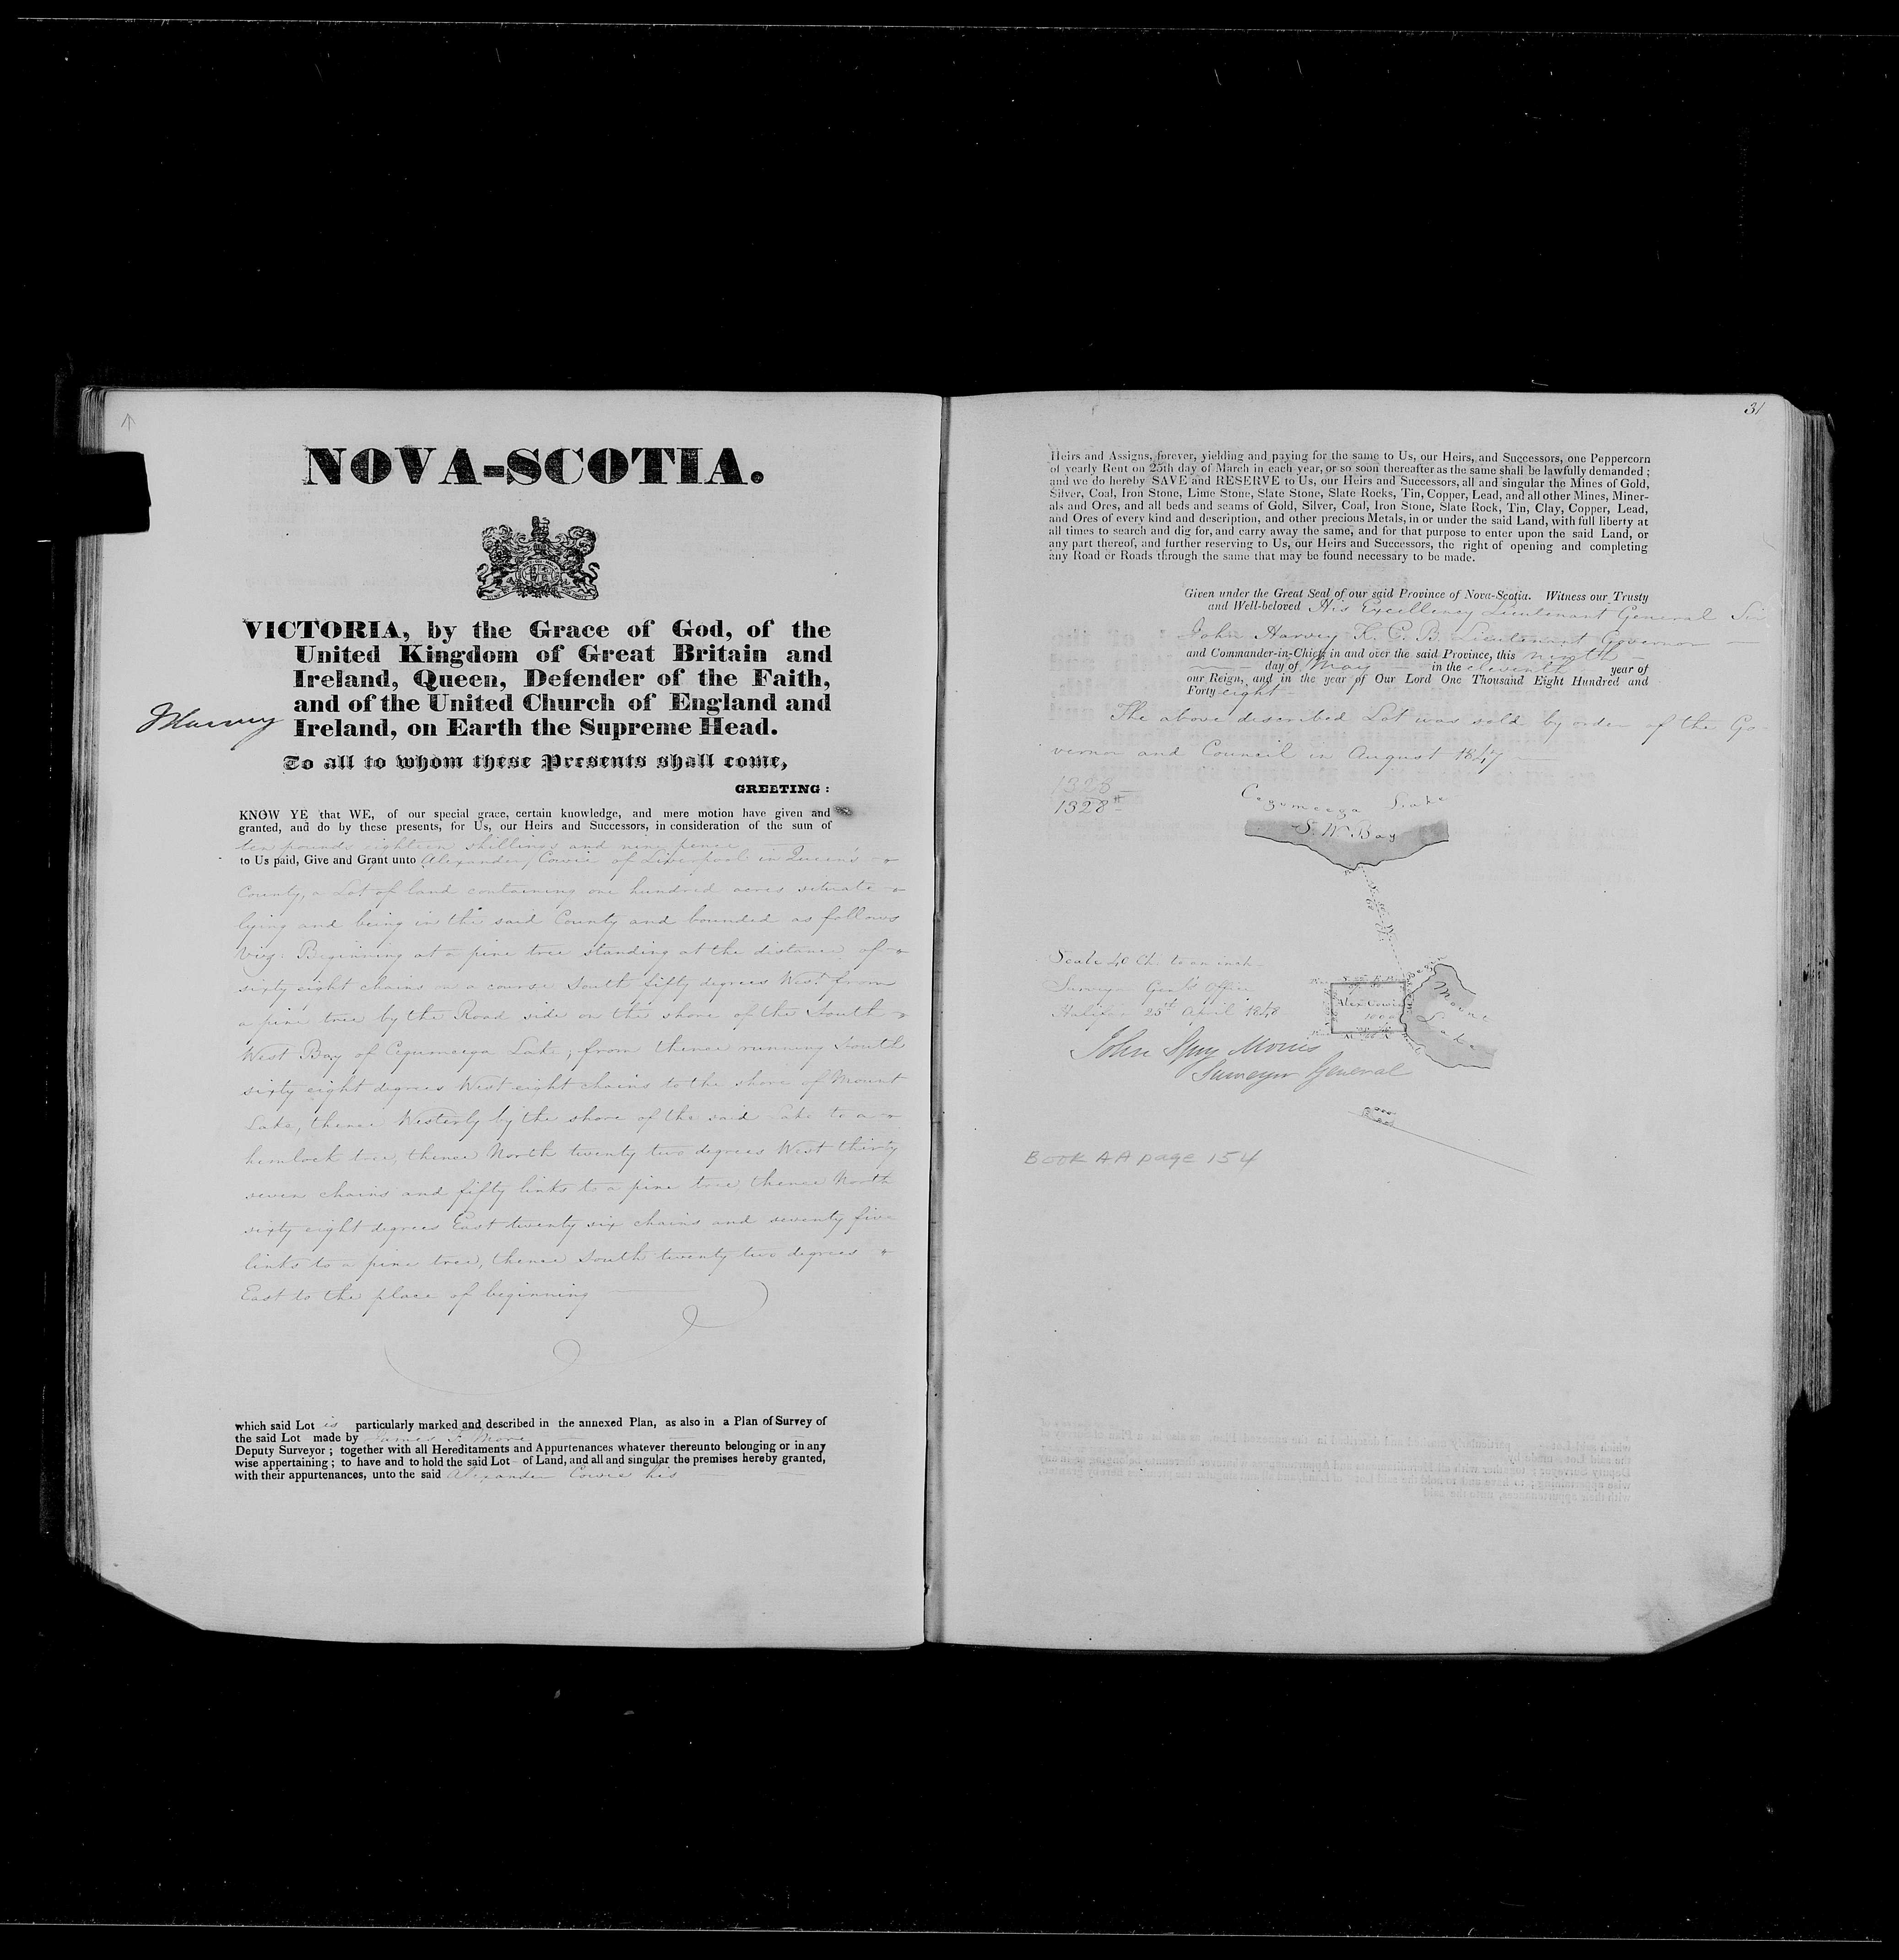 NOVA-SCOTIA.
VICTORIA, by the Grace of God, of the
United Kingdom of Great Britain and
Ireland, Queen, Defender of the Faith,
and of the United Church of England and
Ireland, on Earth the Supreme Head.
J Harvey
To all to whom these Presents shall come,
GREETING:
KNOW YE that WE, of our special grace, certain knowledge, and mere motion have given and
granted, and do by these presents, for Us, our Heirs and Successors, in consideration of the sum of
ten pounds eighteen shillings and nine pence
to Us paid, Give and Grant unto Alexander Cowie of Liverpool in Queen's
County, a Lot of land containing one hundred acres situate
lying and being in the said County and bounded as follows
viz: Beginning at a pine tree standing at the distance of
sixty eight chains on a course South fifty degrees West from
a pine tree by the Road side on the shore of the South
West Bay of Cegumcega Lake; from thence running South
sixty eight degrees West eight chains to the shore of Mount
Lake, thence Westerly by the shore of the said Lake to a
hemlock tree, thence North twenty two degrees West thirty
seven chains and fifty links to a pine tree thence North
sixty eight degrees East twenty six chains and seventy five
links to a pine tree, thence South twenty two degrees
East to the place of beginning
which said Lot is particularly marked and described in the annexed Plan, as also in a Plan of Survey of
the said Lot made by James F. More
Deputy Surveyor; together with all Hereditaments and Appurtenances whatever thereunto belonging or in any
wise appertaining; to have and to hold the said Lot of Land, and all and singular the premises hereby granted,
with their appurtenances, unto the said Alexander Cowie his
31
Heirs and Assigns, forever, yielding and paying for the same to Us, our Heirs, and Successors, one Peppercorn
of yearly Rent on 25th day of March in each year, or so soon thereafter as the same shall be lawfully demanded;
and we do hereby SAVE and RESERVE to Us, our Heirs and Successors, all and singular the Mines of Gold,
Silver, Coal, Iron Stone, Lime Stone, Slate Stone, Slate Rocks, Tin, Copper, Lead, and all other Mines, Miner-
als and Ores, and all beds and seams of Gold, Silver, Coal, Iron Stone, Slate Rock, Tin, Clay, Copper, Lead,
and Ores of every kind and description, and other precious Metals, in or under the said Land, with full liberty at
all times to search and dig for, and carry away the same, and for that purpose to enter upon the said Land, or
any part thereof, and further reserving to Us, our Heirs and Successors, the right of opening and completing
any Road or Roads through the same that may be found necessary to be made.
Given under the Great Seal of our said Province of Nova-Scotia. Witness our Trusty
and Well-beloved His Excellency Lieutenant General Sir
John Harvey K. C. B. Lieutenant Governor
and Commander-in-Chief, in and over the said Province, this ninth
day of May in the eleventh year of
our Reign, and in the year of Our Lord One Thousand Eight Hundred and
Forty eight
The above described Lot was sold by order of the Go-
vernor and Council in August 1847
1328
1328
Cegumcega Lake
S. W. Bay
Scale 40 Ch. to an inch
Surveyor Genl's Office
Halifax 25th April 1848
Alex Cowie
100 a
Mount
Lake
John Spry Morris
Surveyor General
Book AA page 154